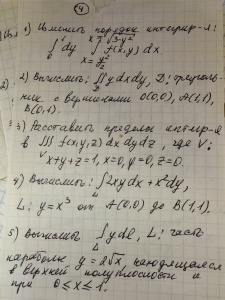 4
1) Изменить порядок интегрир-я:
∫₀¹ dy ∫_{x=y²/2}^{x=√(3-y²)} f(x,y) dx
2) Вычислить: ∬_D y dx dy, D: треуголь-
ник с вершинами O(0,0), A(1,1),
B(0,1).
3) Расставить пределы интегр-я
в ∭_V f(x,y,z) dx dy dz, где V:
x+y+z=1, x=0, y=0, z=0.
4) Вычислить: ∫_L 2xy dx + x² dy,
L: y=x³ от A(0,0) до B(1,1).
5) Вычислить ∫_L y dl, L: часть
параболы y=2√x, находящаяся
в верхней полуплоскости и
при 0≤x≤1.